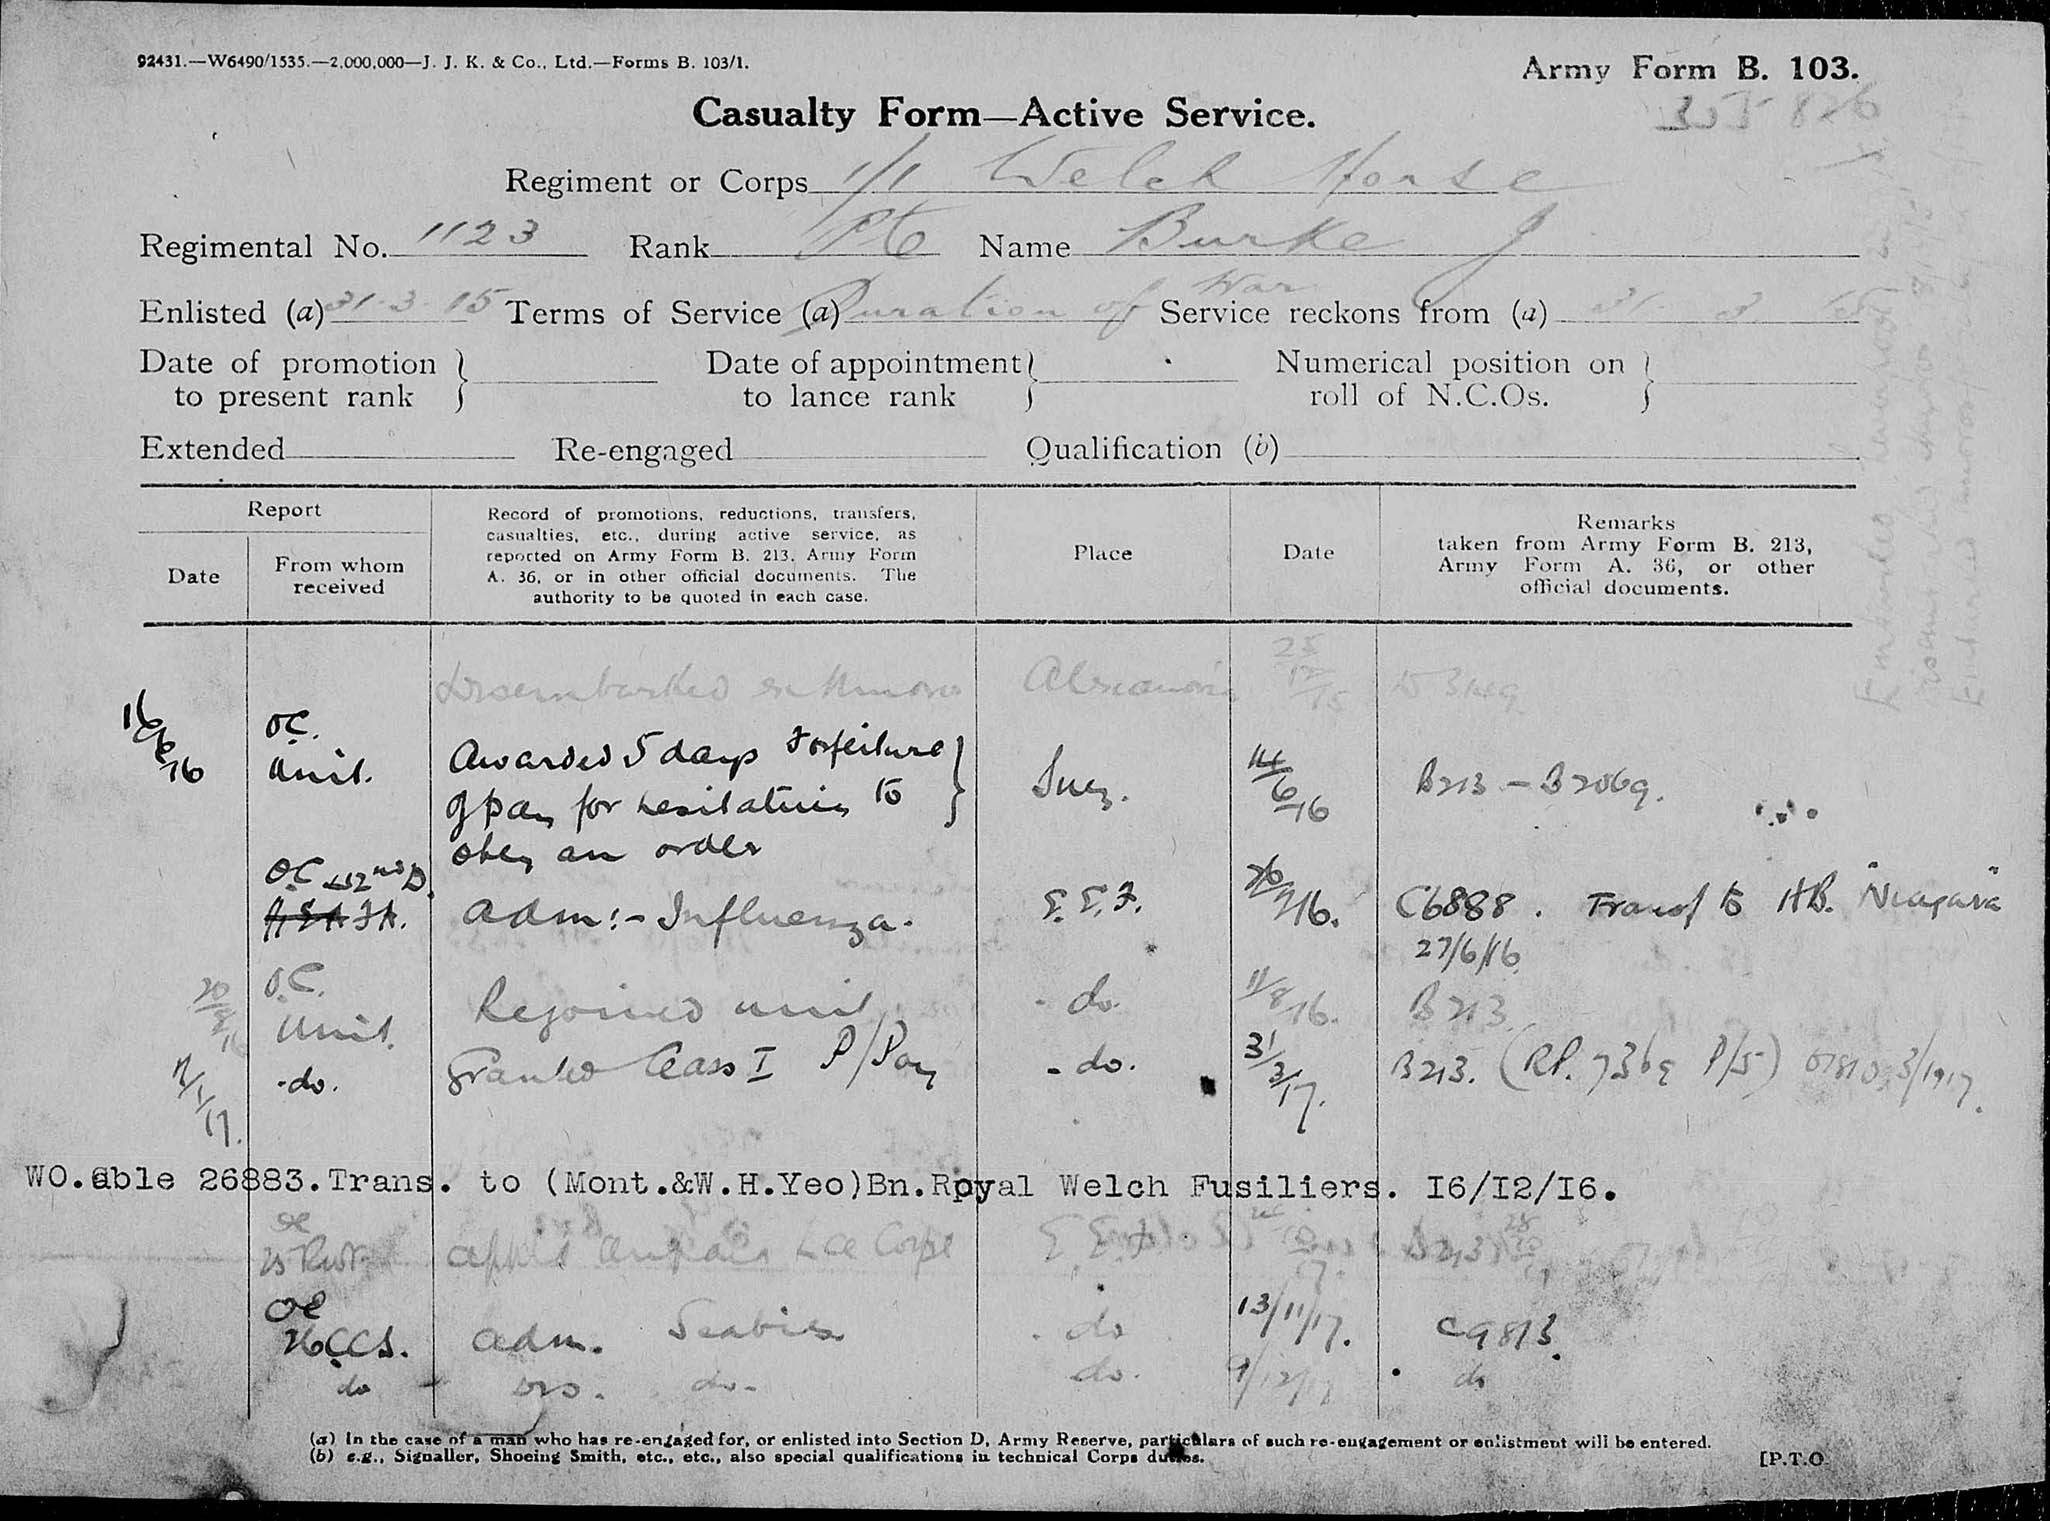 92431.—W6490/1535.—2,000,000—J. J. K. & Co., Ltd.—Forms B. 103/1.
Army Form B. 103.
Casualty Form—Active Service.
Regiment or Corps 1/1 Welch Horse
Regimental No. 1123 Rank Pte Name Burke J
Enlisted (a) 31-3-15 Terms of Service (a) Duration of War Service reckons from (a) 31 3 15
Date of promotion to present rank
Date of appointment to lance rank
Numerical position on roll of N.C.Os.
Extended Re-engaged Qualification (b)
Report
Date
From whom received
Record of promotions, reductions, transfers,
casualties, etc., during active service, as
reported on Army Form B. 213, Army Form
A. 36, or in other official documents. The
authority to be quoted in each case.
Place
Date
Remarks
taken from Army Form B. 213,
Army Form A. 36, or other
official documents.
Disembarked Alexandria 25/12/15
16/6/16 O.C. Unit. Awarded 5 days Forfeiture
of pay for hesitating to
obey an order
Suez. 14/6/16 B213 – B2069.
O.C. 2nd F.A. Adm:- Influenza. E.E.F. C6888. Transf to H.B. "Niagara"
27/6/16.
O.C. Unit. Rejoined unit - do. 11/8/16. B213
- do. Granted Class I P/Pay - do. 31/3/17. B213.
WO.cable 26883.Trans. to (Mont.&W.H.Yeo)Bn.Royal Welch Fusiliers. I6/I2/I6.
OC 25 RWF. appt'd unpaid Lce Corpl E.E.F. B213
OC
26 CCS. adm. Scabies - do 13/11/17. C9813.
do do. do. do
(a) In the case of a man who has re-engaged for, or enlisted into Section D, Army Reserve, particulars of such re-engagement or enlistment will be entered.
(b) e.g., Signaller, Shoeing Smith, etc., etc., also special qualifications in technical Corps duties.
[P.T.O